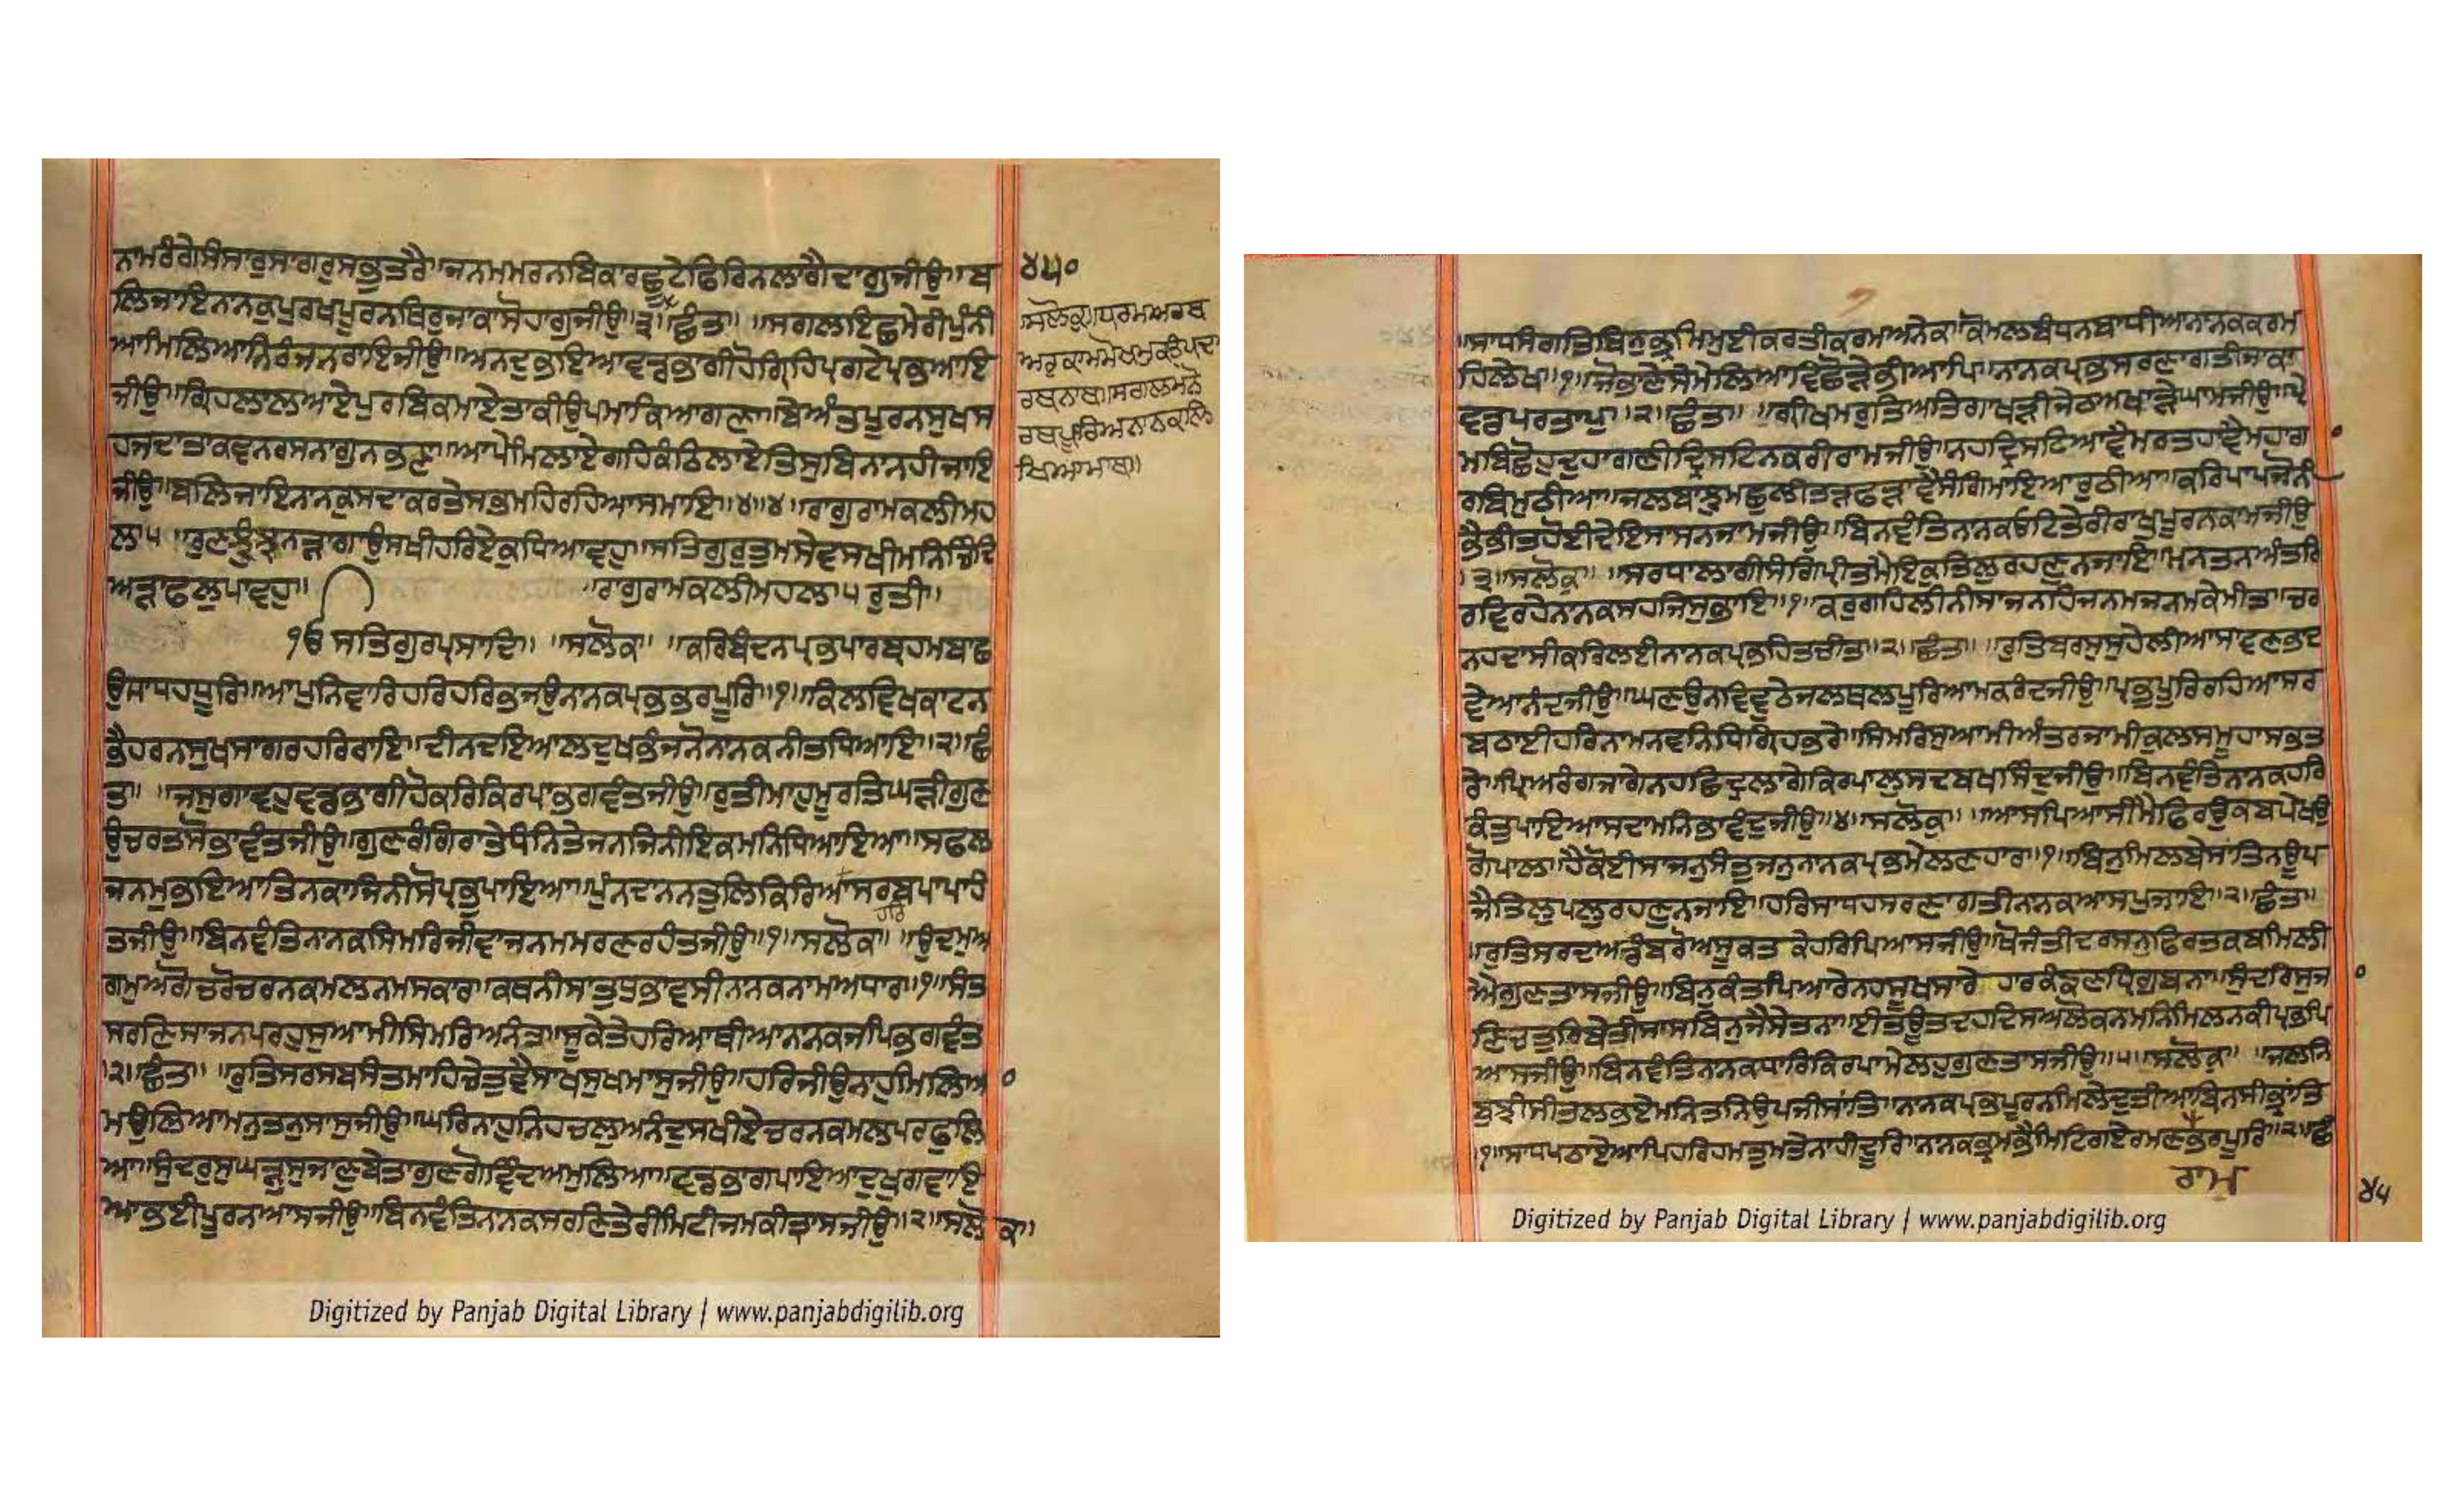 ਨਾਮਰੰਗੇਸੰਸਾਰੁਸਾਗਰੁਸਭੁਤਰੈ॥ਜਨਮਮਰਨਬਿਕਾਰਛੂਟੇਫਿਰਿਨਲਾਗੈਦਾਗੁਜੀਉ॥ਬ
ਲਿਜਾਇਨਾਨਕੁਪੁਰਖਪੂਰਨਥਿਰੁਜਾਕਾਸੋਹਾਗੁਜੀਉ॥੩॥ਛੰਤਾ॥ ॥ਸਗਲਇਛਮੇਰੀਪੁੰਨੀ
ਆਮਿਲਿਆਨਿਰੰਜਨਰਾਇਜੀਉ॥ਅਨਦੁਭਇਆਵਡਭਾਗੀਹੋਗ੍ਰਿਹਿਪ੍ਰਗਟੇਪ੍ਰਭਆਇ
ਜੀਉ॥ਗ੍ਰਿਹਲਾਲਆਏਪੁਰਬਿਕਮਾਏਤਾਕੀਉਪਮਾਕਿਆਗਣਾ॥ਬੇਅੰਤਪੂਰਨਸੁਖਸ
ਹਜਦਾਤਾਕਵਨਰਸਨਾਗੁਨਭਣਾ॥ਆਪੇਮਿਲਾਏਗਹਿਕੰਠਿਲਾਏਤਿਸੁਬਿਨਾਨਹੀਜਾਇ
ਜੀਉ॥ਬਲਿਜਾਇਨਾਨਕੁਸਦਾਕਰਤੇਸਭਮਹਿਰਹਿਆਸਮਾਇ॥੪॥੪॥ਰਾਗੁਰਾਮਕਲੀਮਹ
ਲਾ੫ ॥ਰੁਣਝੁੰਝੁਨੜਾਗਾਉਸਖੀਹਰਿਏਕੁਧਿਆਵਹੁ॥ਸਤਿਗੁਰੁਤੁਮਸੇਵਸਖੀਮਨਿਚਿੰਦਿ
ਅੜਾਫਲੁਪਾਵਹੁ॥ ॥ਰਾਗੁਰਾਮਕਲੀਮਹਲਾ੫ਰੁਤੀ॥
ੴਸਤਿਗੁਰਪ੍ਰਸਾਦਿ॥ ॥ਸਲੋਕਾ॥ ॥ਕਰਿਬੰਦਨਪ੍ਰਭਪਾਰਬ੍ਰਹਮਬਾਛ
ਉਸਾਧਹਧੂਰਿ॥ਆਪੁਨਿਵਾਰਿਹਰਿਹਰਿਭਜਉਨਾਨਕਪ੍ਰਭਭਰਪੂਰਿ॥੧॥ਕਿਲਵਿਖਕਾਟਨ
ਭੈਹਰਨਸੁਖਸਾਗਰਹਰਿਰਾਇ॥ਦੀਨਦਇਆਲਦੁਖਭੰਜਨੋਨਾਨਕਨੀਤਧਿਆਇ॥੨॥ਛੰ
ਤਾ॥ ॥ਜਸੁਗਾਵਹੁਵਡਭਾਗੀਹੋਕਰਿਕਿਰਪਾਭਗਵੰਤਜੀਉ॥ਰੁਤੀਮਾਹਮੂਰਤਿਘੜੀਗੁਣ
ਉਚਰਤਸੋਭਾਵੰਤਜੀਉ॥ਗੁਣਰੰਗਿਰਾਤੇਧੰਨਿਤੇਜਨਜਿਨੀਇਕਮਨਿਧਿਆਇਆ॥ਸਫਲ
ਜਨਮੁਭਇਆਤਿਨਕਾਜਿਨੀਸੋਪ੍ਰਭੁਪਾਇਆ॥ਪੁੰਨਦਾਨਨਤੁਲਿਕਿਰਿਆਸਰਬਪਾਪਾਹੰ
ਹਰਿ
ਤਜੀਉ॥ਬਿਨਵੰਤਿਨਾਨਕਸਿਮਰਿਜੀਵਾਜਨਮਮਰਣਰਹੰਤਜੀਉ॥੧॥ਸਲੋਕਾ॥ ॥ਉਦਮੁਅ
ਗਮੁਅਗੋਚਰੋਚਰਨਕਮਲਨਮਸਕਾਰ॥ਕਥਨੀਸਾਤੁਧੁਭਾਵਸੀਨਾਨਕਨਾਮਅਧਾਰ॥੧॥ਸੰਤ
ਸਰਣਿਸਾਜਨਪਰਹੁਸੁਆਮੀਸਿਮਰਿਅਨੰਤ॥ਸੂਕੇਤੇਹਰਿਆਥੀਆਨਾਨਕਜਪਿਭਗਵੰਤ
੨॥ਛੰਤਾ॥ ॥ਰੁਤਿਸਰਸਬਸੰਤਮਾਹਿਚੇਤੁਵੈਸਾਖਸੁਖਮਾਸੁਜੀਉ॥ਹਰਿਜੀਉਨਾਹੁਮਿਲਿਅ
ਮਉਲਿਆਮਨੁਤਨੁਸਾਸੁਜੀਉ॥ਘਰਿਨਾਹੁਨਿਹਚਲੁਅਨੰਦੁਸਖੀਏਚਰਨਕਮਲਪਰਫੁਲਿ
ਆ॥ਸੁੰਦਰੁਸੁਘੜੁਸੁਜਾਣੁਬੇਤਾਗੁਣਗੋਵਿੰਦਅਮੁਲਿਆ॥ਵਡਭਾਗਪਾਇਆਦੁਖੁਗਵਾਇ
ਆਭਈਪੂਰਨਆਸਜੀਉ॥ਬਿਨਵੰਤਿਨਾਨਕਸਰਣਿਤੇਰੀਮਿਟੀਜਮਕੀਤ੍ਰਾਸਜੀਉ॥੨॥ਸਲੋਕਾ॥
੪੫੦
॥ਸਲੋਕੁ॥ਧਰਮਅਰਥ
ਅਰੁਕਾਮਮੋਖਮੁਕਤਿਪਦਾ
ਰਥਨਾਥ॥ਸਗਲਮਨੋ
ਰਥਪੂਰਿਅਨਾਨਕਲਿ
ਖਿਆਮਾਥ॥
॥ਸਾਧਸੰਗਤਿਬਿਨੁਭ੍ਰਮਿਮੁਈਕਰਤੀਕਰਮਅਨੇਕ॥ਕੋਮਲਬੰਧਨਬਾਧੀਆਨਾਨਕਕਰਮ
ਹਿਲੇਖ॥੧॥ਜੋਭਾਣੇਸੇਮੇਲਿਆਵਿਛੋੜੇਭੀਆਪਿ॥ਨਾਨਕਪ੍ਰਭਸਰਣਾਗਤੀਜਾਕਾ
ਵਡਪਰਤਾਪੁ॥੨॥ਛੰਤਾ॥ ॥ਗ੍ਰੀਖਮਰੁਤਿਅਤਿਗਾਖੜੀਜੇਠਅਖਾੜੈਘਾਮਜੀਉ॥ਪ੍ਰੇ
ਮਬਿਛੋਹੁਦੁਹਾਗਣੀਦ੍ਰਿਸਟਿਨਕਰੀਰਾਮਜੀਉ॥ਨਹਦ੍ਰਿਸਟਿਆਵੈਮਰਤਹਾਵੈਮਹਾਗ
ਰਬਿਮੁਠੀਆ॥ਜਲਬਾਝੁਮਛੁਲੀਤੜਫੜਾਵੈਸੰਗਿਮਾਇਆਰੁਠੀਆ॥ਕਰਿਪਾਪਜੋਨੀ
ਭੈਭੀਤਹੋਈਦੇਇਸਾਸਨਜਾਮਜੀਉ॥ਬਿਨਵੰਤਿਨਾਨਕਓਟਤੇਰੀਰਾਖੁਪੂਰਨਕਾਮਜੀਉ
੩॥ਸਲੋਕਾ॥ ॥ਸਰਧਾਲਾਗੀਸੰਗਿਪ੍ਰੀਤਮੈਇਕੁਤਿਲੁਰਹਣੁਨਜਾਇ॥ਮਨਤਨਅੰਤਰਿ
ਰਵਿਰਹੇਨਾਨਕਸਹਜਿਸੁਭਾਇ॥੧॥ਕਰੁਗਹਿਲੀਨੀਸਾਜਨਹਿਜਨਮਜਨਮਕੇਮੀਤ॥ਚਰ
ਨਹਦਾਸੀਕਰਿਲਈਨਾਨਕਪ੍ਰਭਹਿਤਚੀਤ॥੨॥ਛੰਤਾ॥ ॥ਰੁਤਿਬਰਸੁਸੁਹੇਲੀਆਸਾਵਣਭਾਦ
ਵੇਆਨੰਦਜੀਉ॥ਘਣਉਨਵਿਵੁਠੇਜਲਥਲਪੂਰਿਆਮਕਰੰਦਜੀਉ॥ਪ੍ਰਭੁਪੂਰਿਰਹਿਆਸਰ
ਬਠਾਈਹਰਿਨਾਮਨਵਨਿਧਿਗ੍ਰਿਹਭਰੇ॥ਸਿਮਰਿਸੁਆਮੀਅੰਤਰਜਾਮੀਕੁਲਸਮੂਹਾਸਭਤ
ਰੇ॥ਪ੍ਰਿਅਰੰਗਜਾਗੇਨਹਛਿਦ੍ਰਲਾਗੇਕਿਰਪਾਲੁਸਦਬਖਸਿੰਦੁਜੀਉ॥ਬਿਨਵੰਤਿਨਾਨਕਹਰਿ
ਕੰਤੁਪਾਇਆਸਦਾਮਨਿਭਾਵੰਦੁਜੀਉ॥੪॥ਸਲੋਕੁ॥ ॥ਆਸਪਿਆਸੀਮੈਫਿਰਉਕਬਪੇਖਉ
ਗੋਪਾਲ॥ਹੈਕੋਈਸਾਜਨੁਸੰਤੁਜਨੁਨਾਨਕਪ੍ਰਭਮੇਲਣਹਾਰ॥੧॥ਬਿਨੁਮਿਲਬੇਸਾਂਤਿਨਊਪ
ਜੈਤਿਲੁਪਲੁਰਹਣੁਨਜਾਇ॥ਹਰਿਸਾਧਹਸਰਣਾਗਤੀਨਾਨਕਆਸਪੁਜਾਇ॥੨॥ਛੰਤਾ॥
॥ਰੁਤਿਸਰਦਅਡੰਬਰੋਅਸੂਕਤਕੇਹਰਿਪਿਆਸਜੀਉ॥ਖੋਜੰਤੀਦਰਸਨੁਫਿਰਤਕਬਮਿਲੀ
ਐਗੁਣਤਾਸਜੀਉ॥ਬਿਨੁਕੰਤਪਿਆਰੇਨਹਸੂਖਸਾਰੇਹਾਰਕੰਙਣਧ੍ਰਿਗੁਬਨਾ॥ਸੁੰਦਰਿਸੁਜਾ
ਣਿਚਤੁਰਿਬੇਤੀਸਾਸਬਿਨੁਜੈਸੇਤਨਾ॥ਈਤਊਤਦਹਦਿਸਅਲੋਕਨਮਨਿਮਿਲਨਕੀਪ੍ਰਭਪਿ
ਆਸਜੀਉ॥ਬਿਨਵੰਤਿਨਾਨਕਧਾਰਿਕਿਰਪਾਮੇਲਹੁਗੁਣਤਾਸਜੀਉ॥੫॥ਸਲੋਕਾ॥ ॥ਜਲਨਿ
ਬੁਝੀਸੀਤਲਭਏਮਨਿਤਨਿਉਪਜੀਸਾਂਤਿ॥ਨਾਨਕਪ੍ਰਭਪੂਰਨਮਿਲੇਦੁਤੀਆਬਿਨਸੀਭ੍ਰਾਂਤਿ
੧॥ਸਾਧਪਠਾਏਆਪਿਹਰਿਹਮਤੁਮਤੇਨਾਹੀਦੂਰਿ॥ਨਾਨਕਭ੍ਰਮਭੈਮਿਟਿਗਏਰਮਣਭਰਪੂਰਿ॥੨॥ਛੰ
ਰਾਮ
੪੫
Digitized by Panjab Digital Library | www.panjabdigilib.org
Digitized by Panjab Digital Library | www.panjabdigilib.org